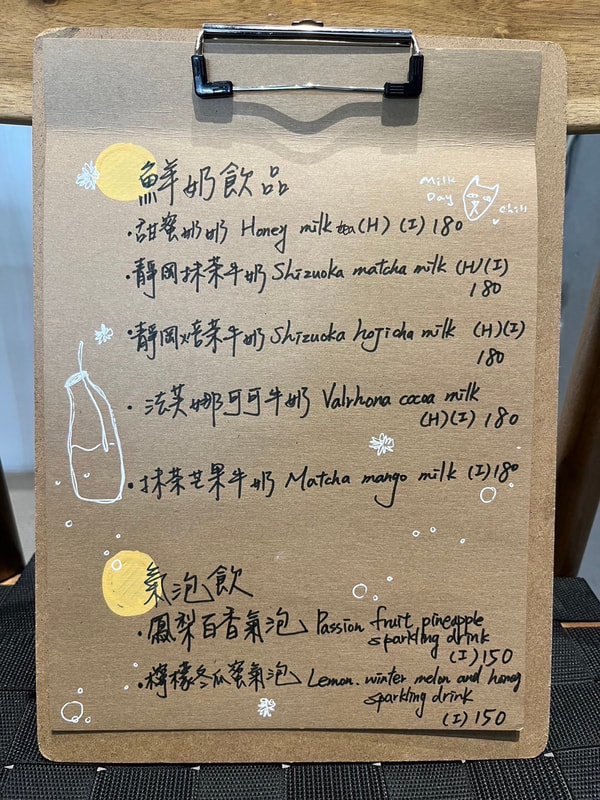 鮮奶飲品
Milk
Day
chill
·甜蜜奶奶 Honey milk tea (H) (I) 180
·靜岡抹茶牛奶 Shizuoka matcha milk (H)(I)
180
·靜岡焙茶牛奶 Shizuoka hojicha milk (H)(I)
180
·法芙娜可可牛奶 Valrhona cocoa milk
(H)(I) 180
·抹茶芒果牛奶 Matcha mango milk (I) 180
氣泡飲
·鳳梨百香氣泡 Passion fruit pineapple
sparkling drink
(I) 150
·檸檬冬瓜蜜氣泡 Lemon. winter melon and honey
sparkling drink
(I) 150